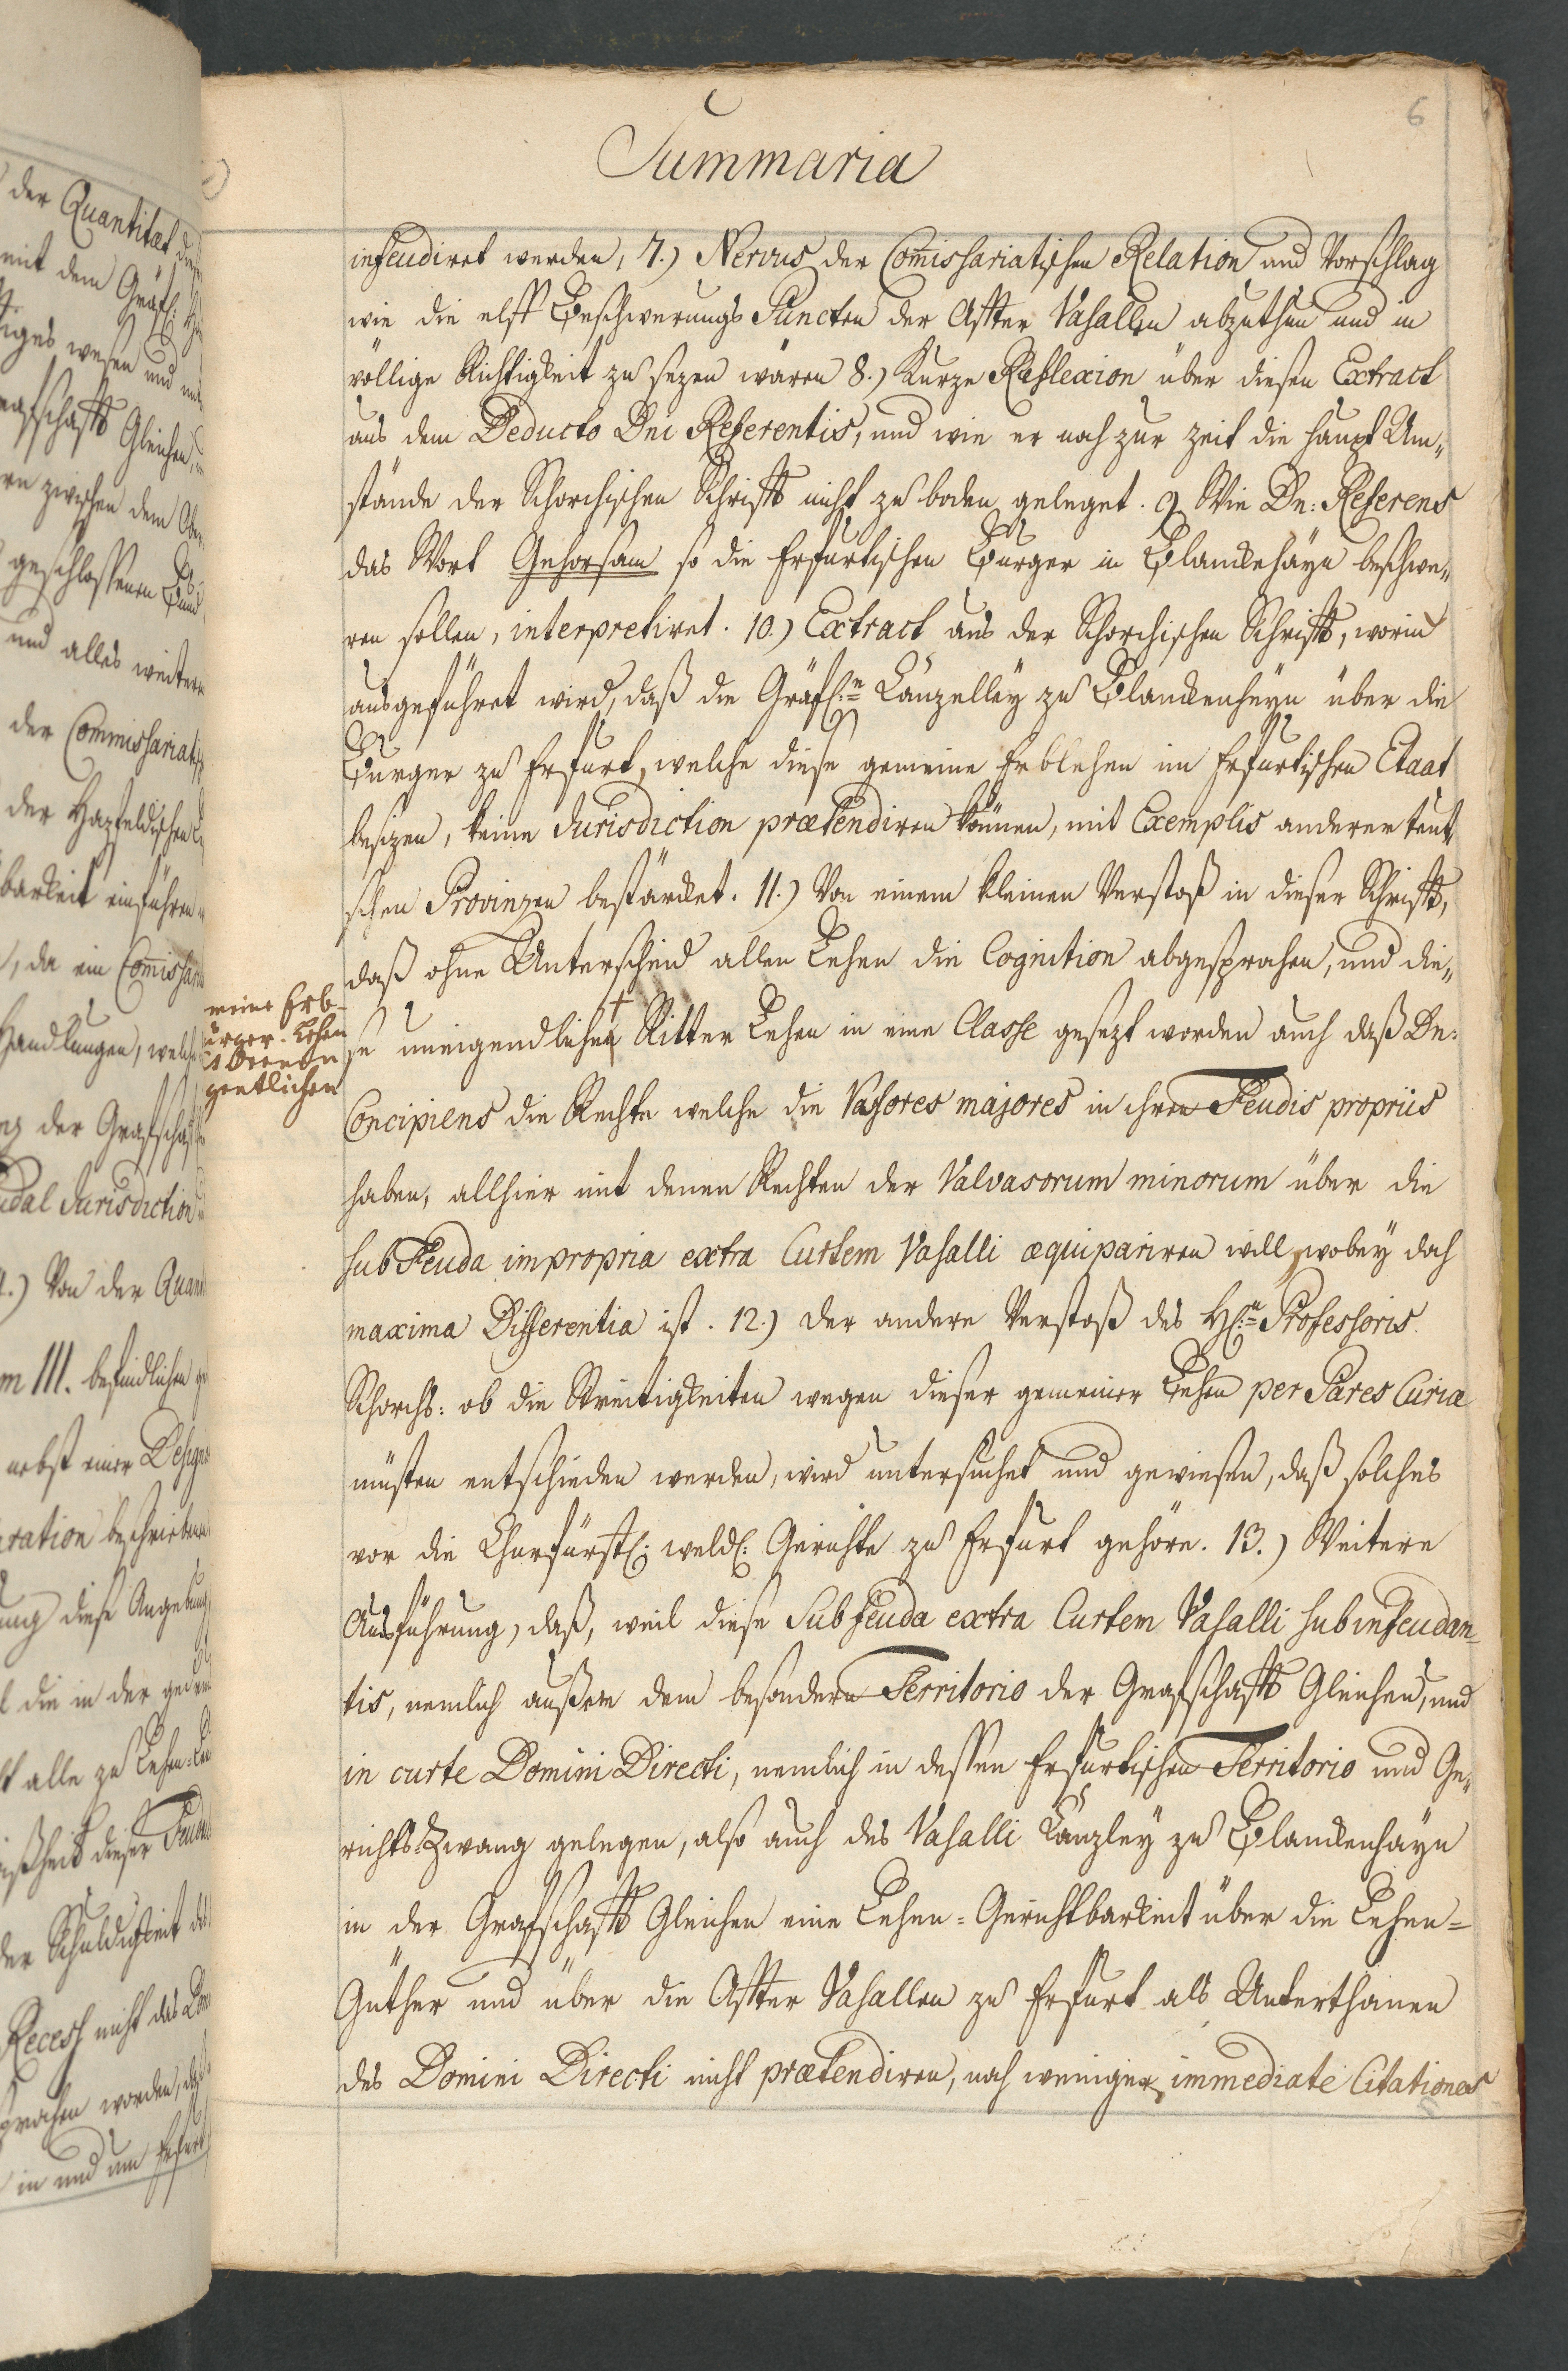 6
Summaria
infeudiret werden, 7.) Nervus der Com̄issariatischen Relation und Vorschlag
wie die elff Beschwerungs Puncten der Affter Vasallen abzuthun und in
völlige Richtigkeit zu sezen wären 8.) Kurze Reflexion über diesen Extract
aus dem Deducto Dni Referentis, und wie er noch zur zeit die haupt Um„
stände der Schorchischen Schrifft nicht zu boden geleget. 9 Wie Dn: Referens
das Wort Gehorsam so die Erfurtischen Burger in Blanckehayn beschwe„
ren sollen, interpretiret. 10.) Extract aus der Schorchischen Schrifft, worin
ausgeführet wird, daß die Gräfl:e Canzelley zu Blanckenheyn über die
Burger zu Erfurt, welche diese gemeine Erblehen im Erfurtischen Etaat
besizen, keine Jurisdiction prætendiren können, mit Exemplis anderer teut
schen Provinzen bestärcket. 11.) Von einem kleinen Verstoß in dieser Schrifft,
daß ohne Unterscheid allen Lehen die Cognition abgesprochen, und die„
se uneigendlichen Ritter Lehen in eine Classe gesezt worden auch daß Dn:
Concipiens die Rechte welche die Vassores majores in ihren Feudis propriis
haben, allhier mit denen Rechten der Valvasorum minorum über die
sub Feuda impropria extra Curtem Vasalli æquipariren will, wobey doch
maxima Differentia ist. 12.) der andere Verstoß des H:n Professoris
Schorchs: ob die Streitigkeiten wegen dieser gemeiner Lehen per Pares Curiæ
müsten entschieden werden, wird untersuchet und gewiesen, daß solches
vor die Churfürstl: weldl: Gerichte zu Erfurt gehöre. 13.) Weitere
Ausführung, daß, weil diese Subfeuda extra Curtem Vasalli subinfeudan„
tis, nemlich außere dem besondern Territorio der Grafschafft Gleichen, und
in curte Domini Directi, nemlich in dessen Erfurtischen Territorio und Ge„
richts Zwang gelegen, also auch des Vasalli Canzley zu Blanckenhayn
in der Grafschafft Gleichen eine Lehen-Gerichtbarkeit über die Lehen-
Güther und über die Affter Vasallen zu Erfurt als Unterthanen
des Domini Directi nicht prætendiren, noch weniger, immediate Citationes
meine Erb-
ürger-Lehen
gentlichen
der Quantitæt
mit dem Gräfl:
wesen und
Gleichen,
zwischen dem
geschlossenen Bund
und alles weitere
der Commissariatisch
der Hazfeldischen
barkeit einführen
, da ein Com̄issari
Handlungen, welche
der Grafschafft
Jurisdiction
Von der Quan
III. befindlichen
nebst einer Design
ration beschriebene
diese Angebung
die in der
alle zu Lehen
dieser Feuda
der Schuldigkeit des
Recess nicht das
prochen worden, daß
in und um Erfurt